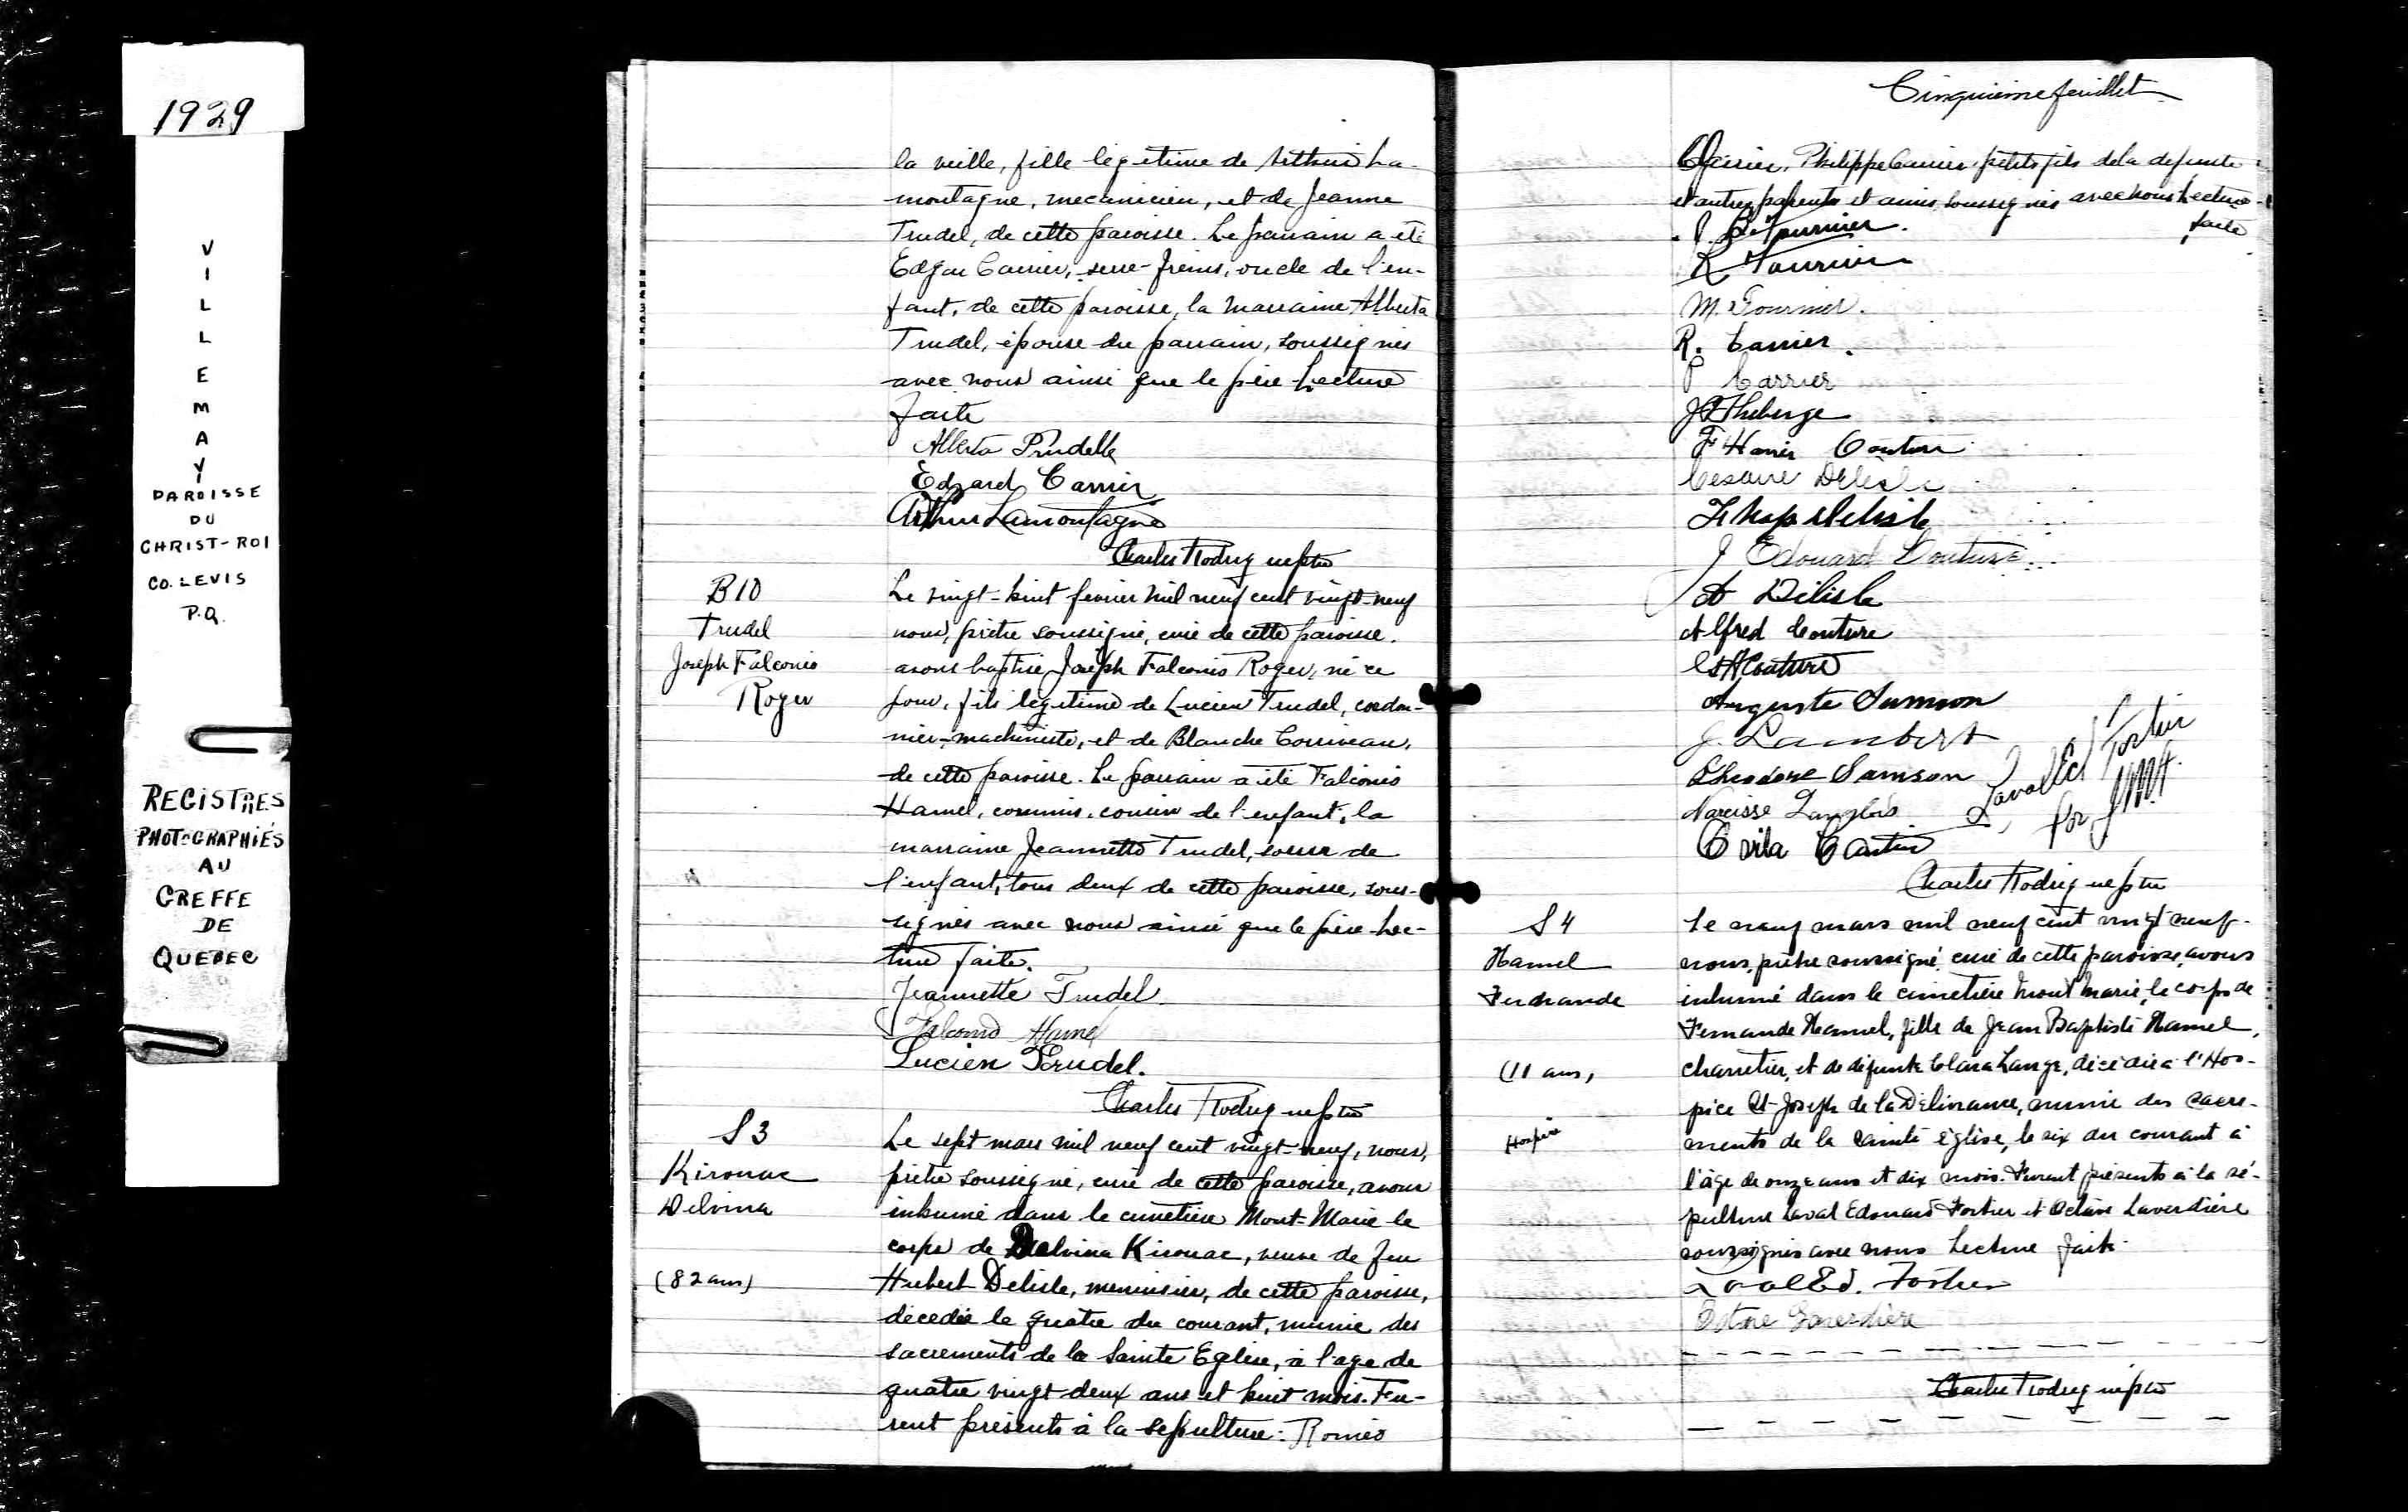 1929
V
I
L
L
E
M
A
Y
PAROISSE
DU
CHRIST-ROI
CO. LEVIS
P.Q.
REGISTRES
PHOTOGRAPHIÉS
AU
GREFFE
DE
QUEBEC
la veille, fille légitime de Arthur La-
montagne, mécanicien, et de Jeanne
Trudel, de cette paroisse. Le parrain a été
Edgar Carrier, serre-freins, oncle de l'en-
fant, de cette paroisse, la marraine Alberta
Trudel, épouse du parrain, soussignés
avec nous ainsi que le père Lecture
faite
Alberta Trudelle
Edgard Carrier
Arthur Lamontagne
Charles Rodrig ueptre
B10
Trudel
Joseph Falconio
Roger
Le vingt-huit fevrier mil neuf cent vingt-neuf
nous, prêtre soussigné, curé de cette paroisse.
avons baptisé Joseph Falconio Roger, né ce
jour, fils légitime de Lucien Trudel, cordon-
nier-machiniste, et de Blanche Corriveau,
de cette paroisse. Le parrain a été Falconio
Hamel, commis, cousin de l'enfant, la
marraine Jeannette Trudel, soeur de
l'enfant, tous deux de cette paroisse, sous-
signés avec nous ainsi que le père Lec-
ture faite.
Jeannette Trudel
Falconio Hamel
Lucien Trudel.
Charles Rodrig ueptre
S3
Kirouac
Delvina
(82 ans)
Le sept mars mil neuf cent vingt-neuf, nous,
prêtre soussigné, curé de cette paroisse, avons
inhumé dans le cimetière Mont-Marie le
corps de Delvina Kirouac, veuve de feu
Hubert Delisle, menuisier, de cette paroisse,
décédée le quatre du courant, munie des
sacrements de la Sainte Eglise, à l'age de
quatre vingt deux ans et huit mois. Fu-
rent présents à la sépulture: Roméo
Cinquième feuillet
Carrier, Philippe Carrier petits fils de la defunte
et autres parents et amis soussignés avec nous Lecture
faite
Fournier.
R Fournier
M. Fournier.
R. Carrier.
P Carrier
J Theberge
Couture
Cesaire Delisle
Delisle
J Edouard Couture
A Delisle
Alfred Couture
Couture
Auguste Samson
J. Lambert
Theodore Samson
Narcisse Langlois
Laval Ed Fortier
Ovila Cantin
Charles Rodrig ueptre
S4
Hamel
Fernande
(11 ans,
Hospice
Le neuf mars mil neuf cent vingt neuf-
nous, prêtre soussigné, curé de cette paroisse, avons
inhumé dans le cimetière Mont Marie, le corps de
Fernande Hamel, fille de Jean Baptiste Hamel,
charretier, et de défunte Clara Lange, décédée à l'Hos-
pice St-Joseph de la Délivrance, munie des sacre-
ments de la Sainte église, le six du courant à
l'âge de onze ans et dix mois. Furent présents à la sé-
pulture Laval Edouard Fortier et Octave Laverdière
soussignés avec nous Lecture faite.
Laval Ed. Fortier
Octave Laverdière
Charles Rodrig ueptre